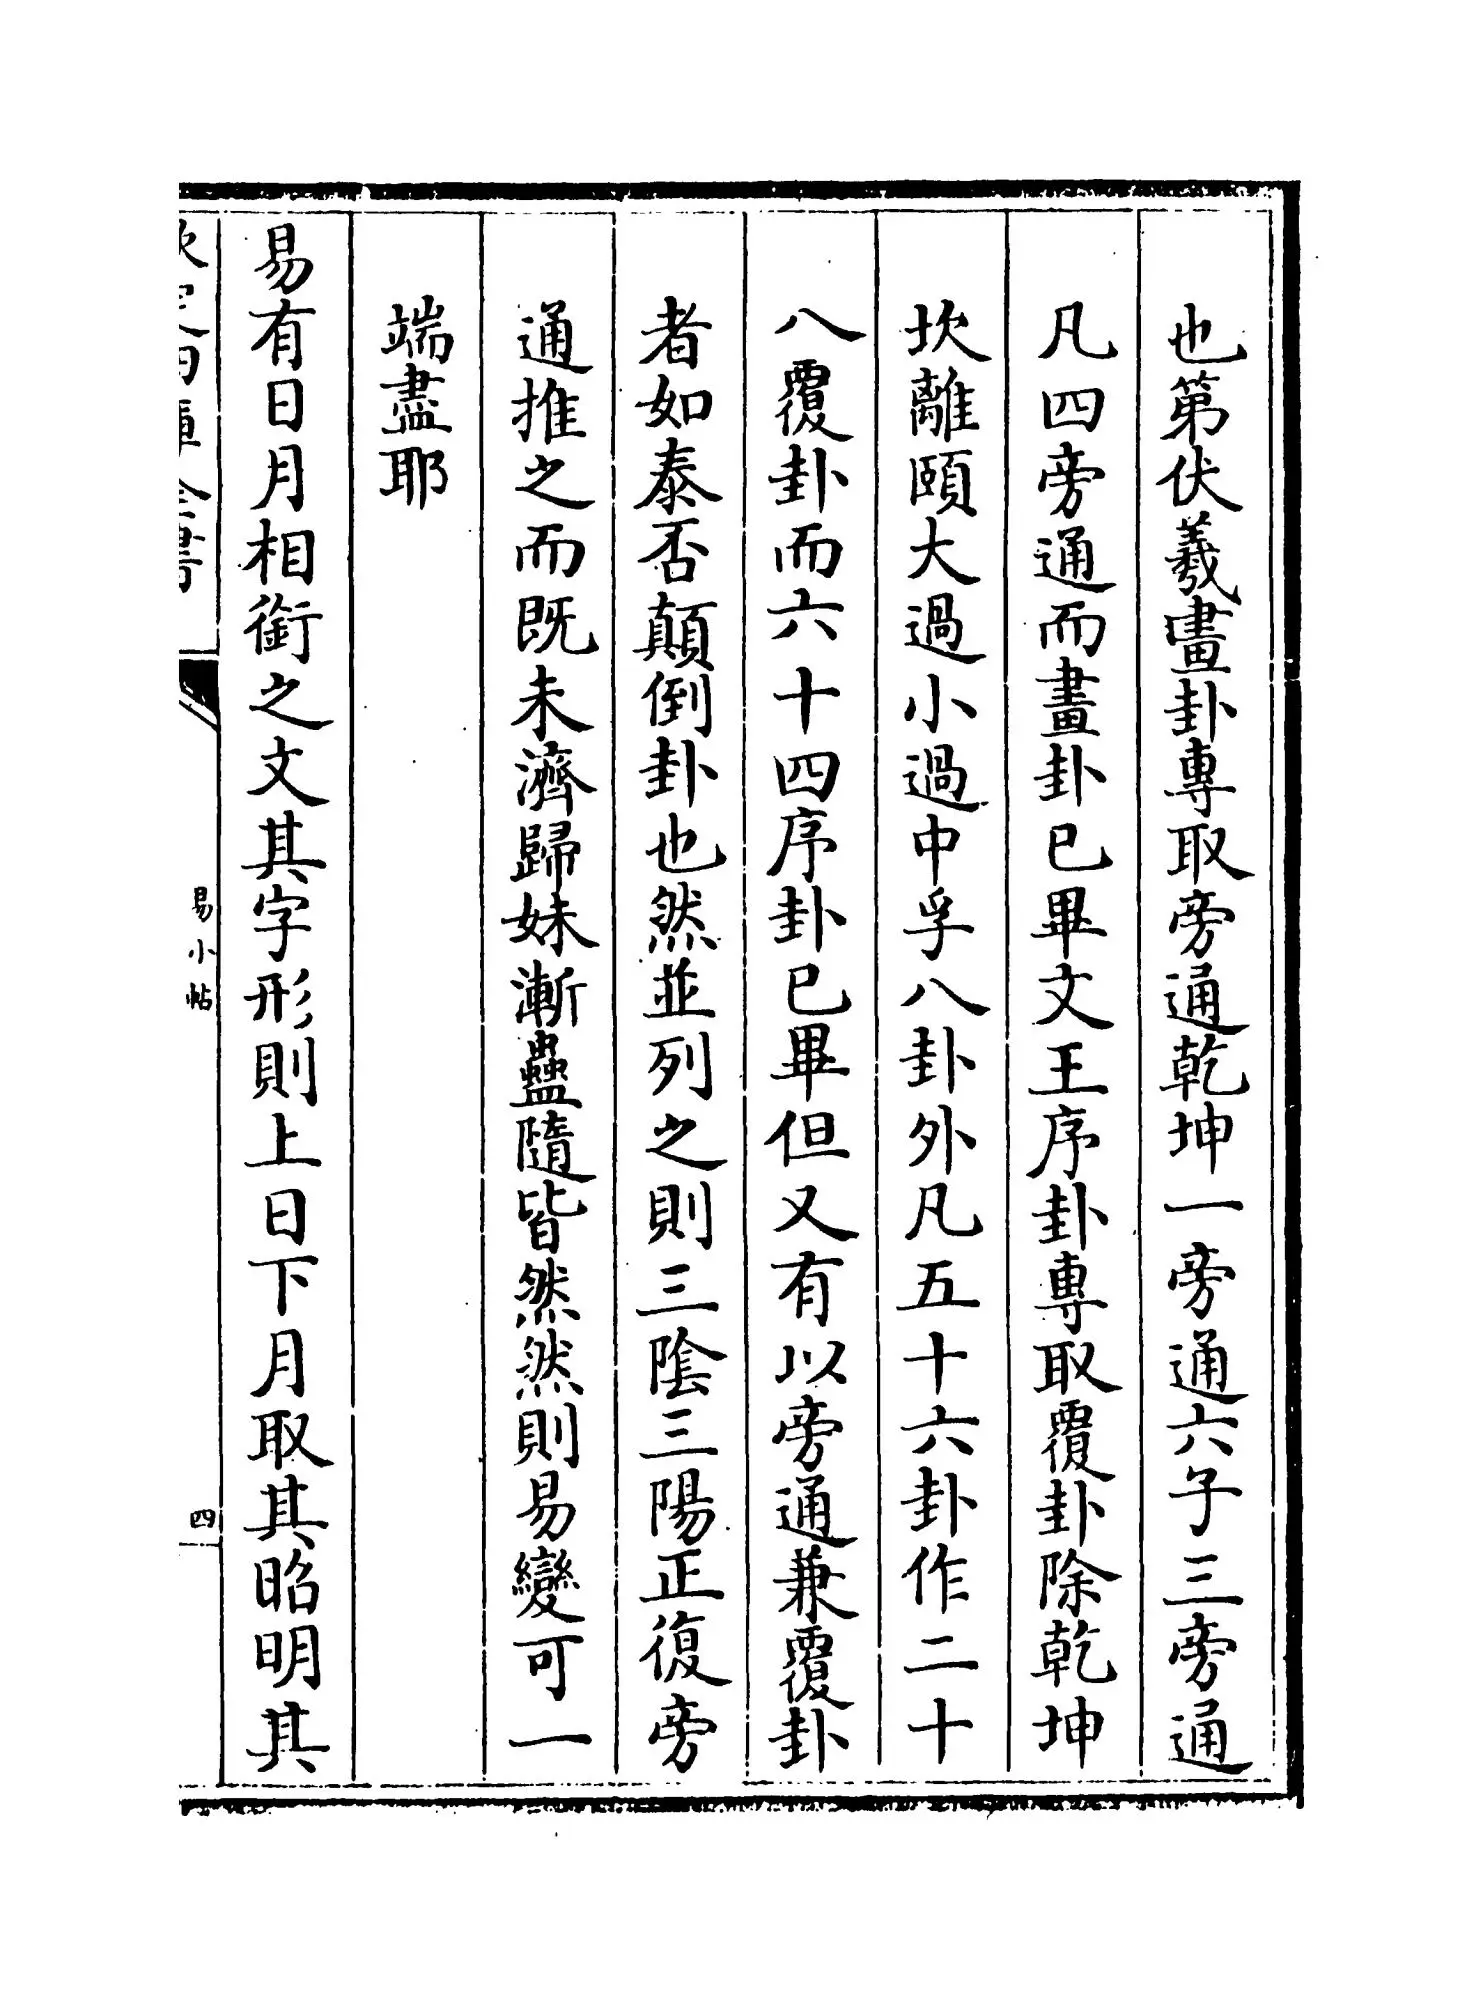 也第伏羲畫卦專取旁通乾坤一旁通六子三旁通
凡四旁通而畫卦已畢文王序卦專取覆卦除乾坤
坎離頤大過小過中孚八卦外凡五十六卦作二十
八覆卦而六十四序卦已畢但又有以旁通兼覆卦
者如泰否顛倒卦也然並列之則三陰三陽正復旁
通推之而既未濟歸妹漸蠱隨皆然然則易變可一
端盡耶
易有日月相銜之文其字形則上日下月取其昭明其
易小帖
四